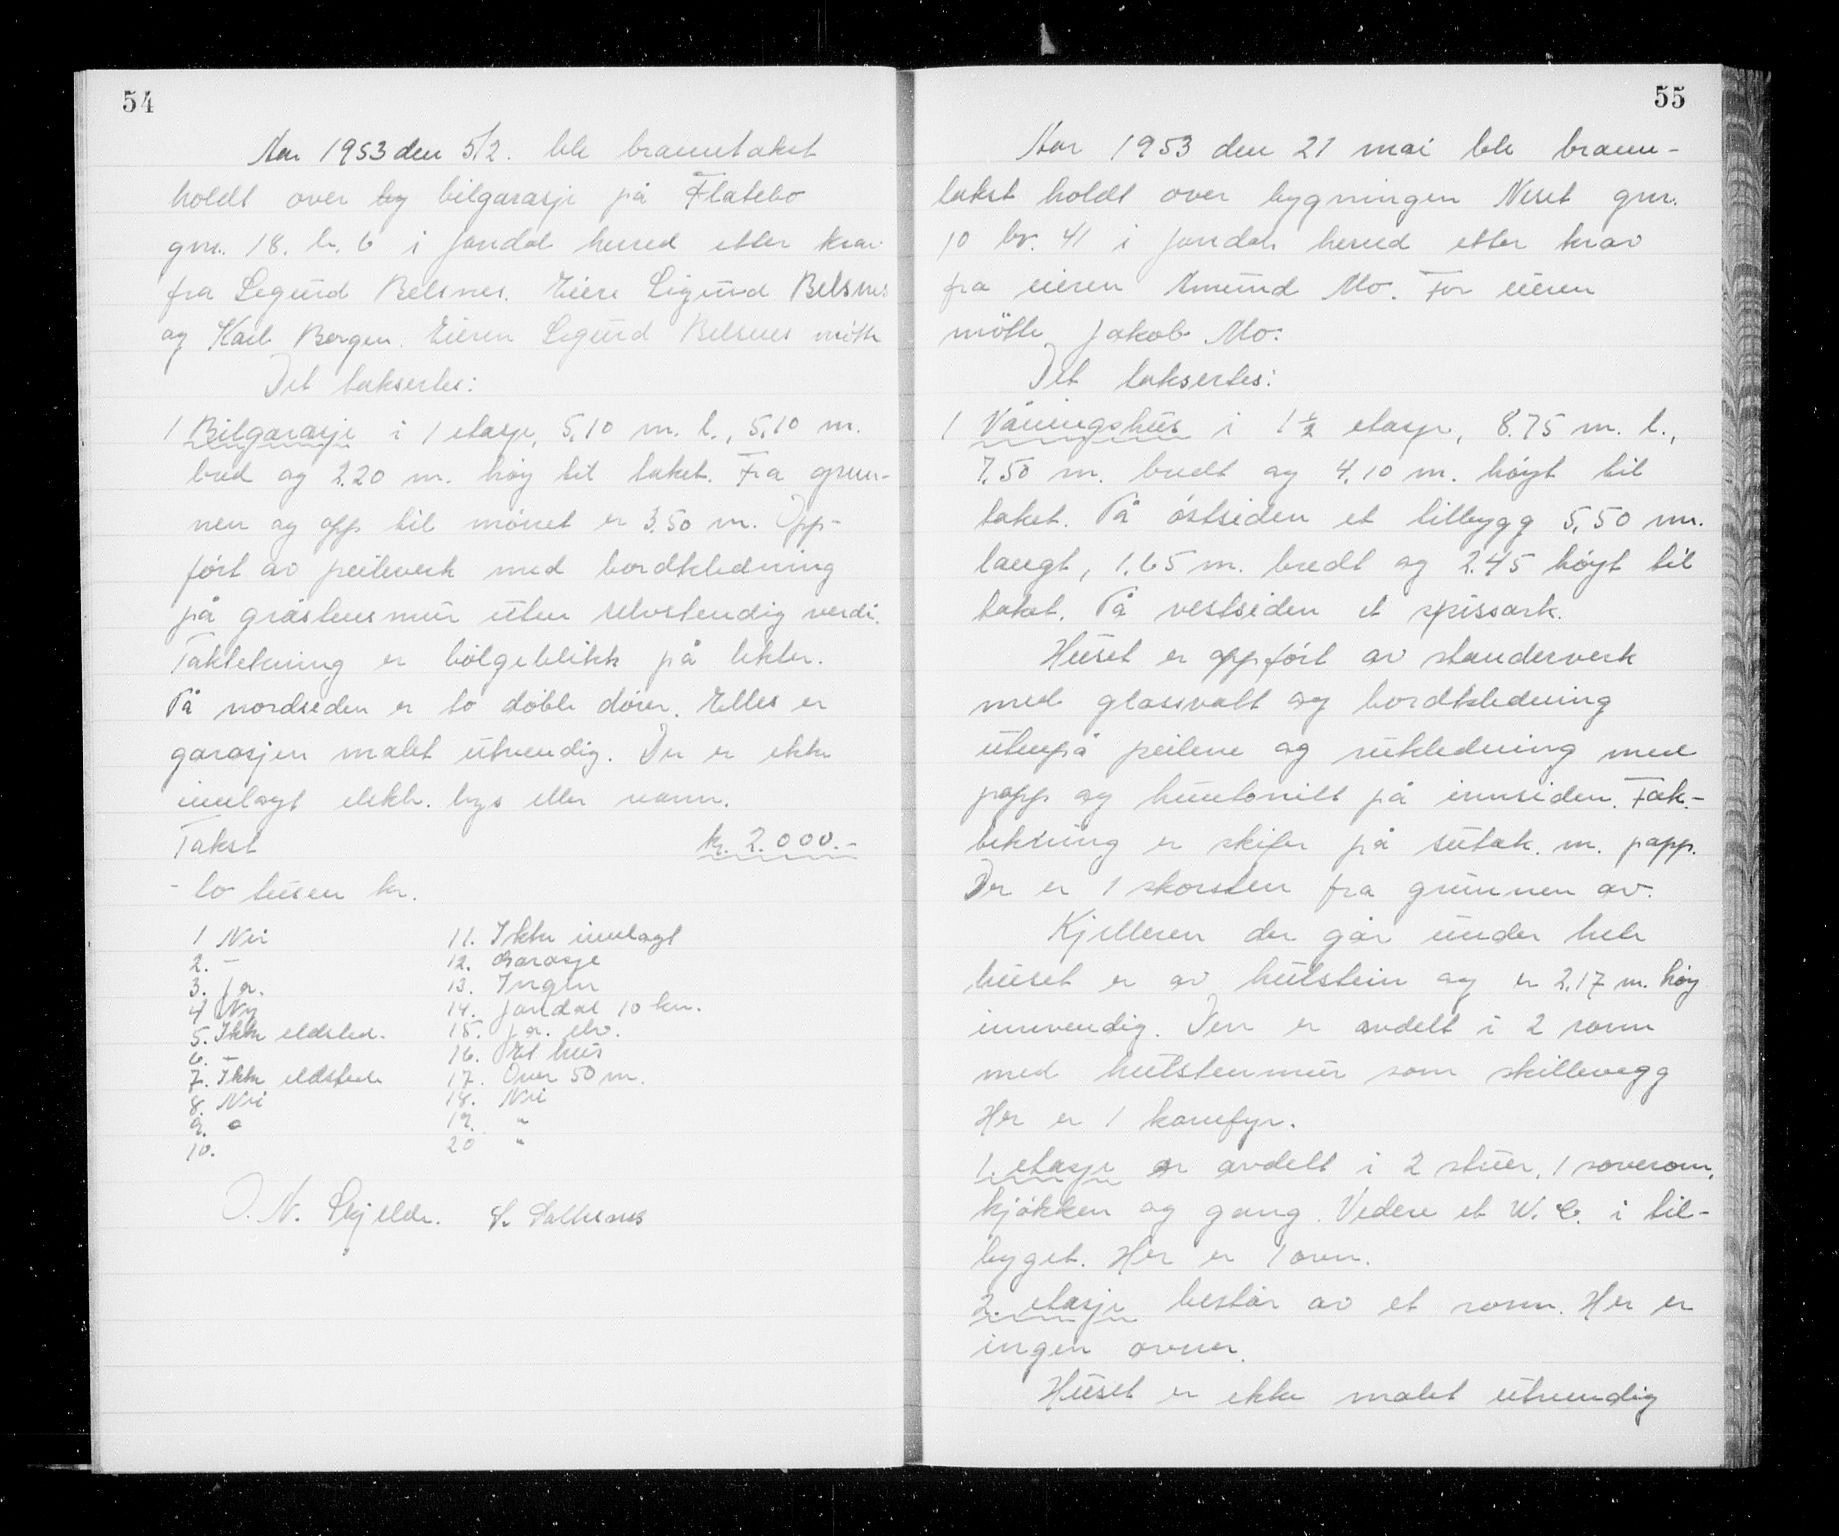 54
Aar 1953 den 5/2. ble branntakst
holdt over by bilgarasje på Flatebø
gnr. 18. b. 6 i Jondal herred etter krav
fra Sigurd Belsnes. Eiere Sigurd Belsnes
og Karl Borgen. Eieren Sigurd Belsnes møtte
Det taksertes:
1 Bilgarasje i 1 etasje, 5,10 m. l., 5,10 m.
bred og 2.20 m. høy til taket. Fra grun-
nen og opp til mønet er 3,50 m. Opp-
ført av peileverk med bordkledning
på gråstensmur uten selvstendig verdi.
Taktekning er bølgeblikk på lekter.
På nordsiden er to doble dører. Elles er
garasjen malet utvendig. Der er ikke
innlagt elektr. lys eller vann.
Takst kr. 2.000.-
- to tusen kr.
1 Nei
2. -
3. Ja.
4 Ny
5. Ikke eldsted.
6. -
7. Ikke eldstede
8. Nei
9. "
10.
11. Ikke innlagt
12. Garasje
13. Ingen
14. Jondal 10 km.
15. Ja. elv.
16. Et hus
17. Over 50 m.
18. Nei
19. "
20 "
O. N. Skjelde. S. Saltesnes
55
Aar 1953 den 21 mai ble brann-
takst holdt over bygningen Neset gnr.
10 br. 41 i Jondal herred etter krav
fra eieren Amund Mo. For eieren
møtte Jakob Mo.
Det taksertes:
1 Våningshus i 1 1/2 etasje, 8.75 m. l.,
7,50 m. bredt og 4,10 m. høyt til
taket. På østsiden et tilbygg 5,50 m.
langt, 1,65 m. bredt og 2.45 høyt til
taket. På vestsiden et spissark.
Huset er oppført av standerverk
med glassvatt og bordkledning
utenpå peilene og rukledning med
papp og huntonitt på innsiden. Tak-
tekning er skifer på sutak m. papp.
Der er 1 skorsten fra grunnen av.
Kjelleren der går under hele
huset er av hulstein og er 2,17 m. høy
innvendig. Den er avdelt i 2 romm
med hulstenmur som skillevegg
Her er 1 komfyr.
1. etasje er avdelt i 2 stuer, 1 soverom,
kjøkken og gang. Videre et W. C. i til-
byget. Her er 1 ovn.
2. etasje består av et romm. Her er
ingen ovner.
Huset er ikke malet utvendig